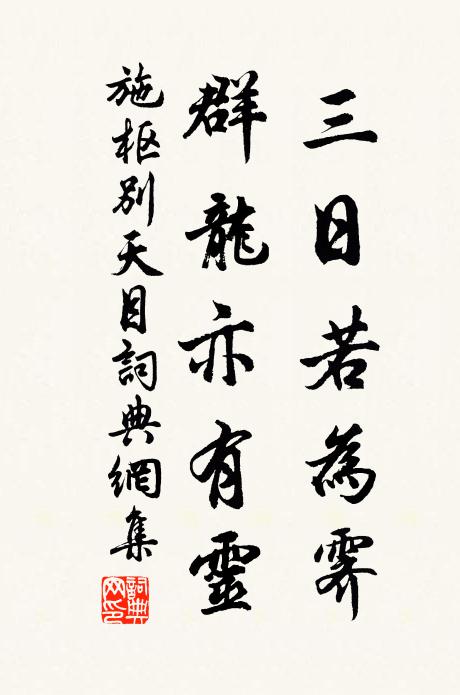 三日若為霽
群龍亦有靈
施枢别天目詞典網集
詞典网印